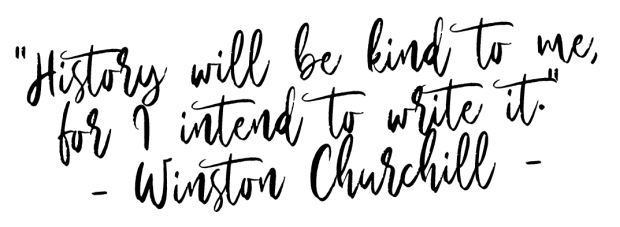 "History will be kind to me,
for I intend to write it."
- Winston Churchill -